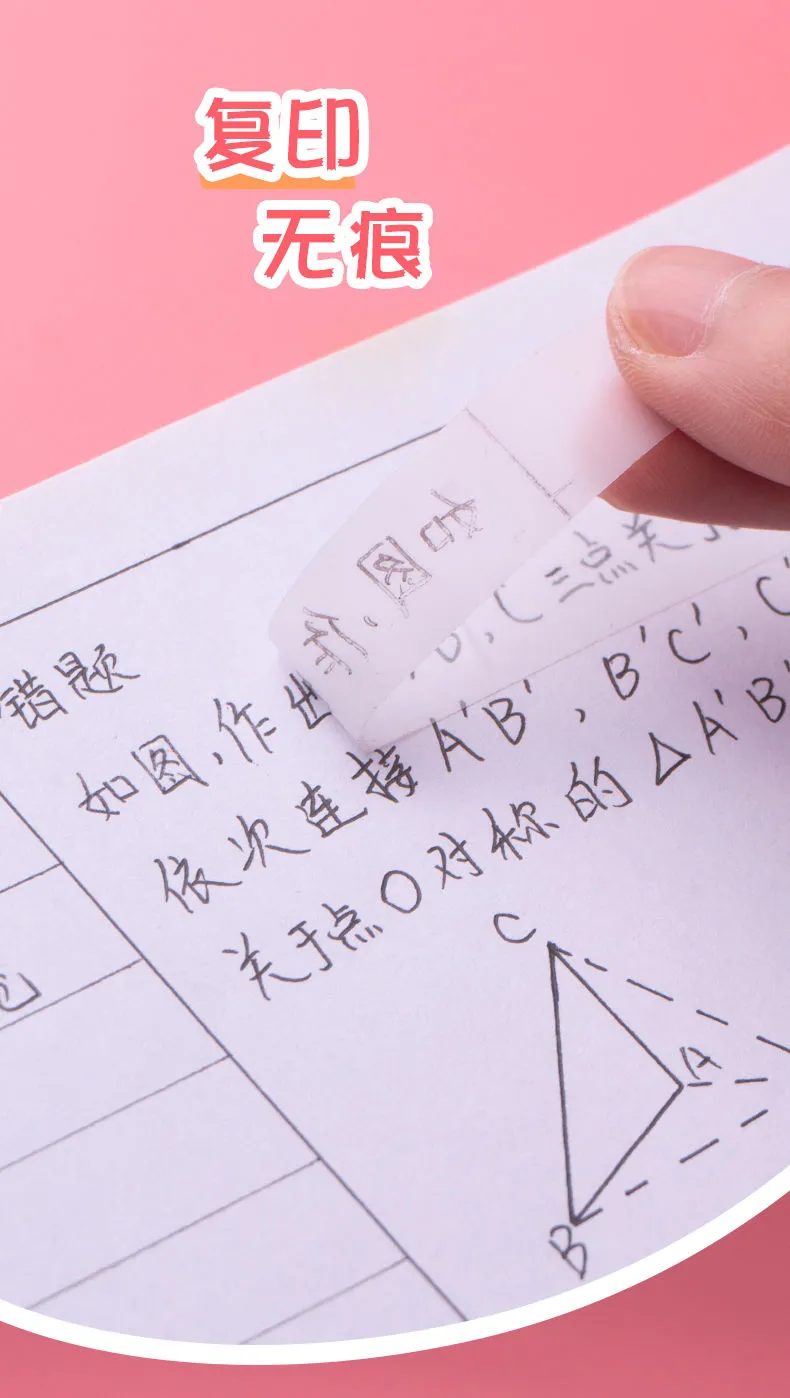 复印
无痕
错题
如图,作出 B,C三点关于
依次连接A'B',B'C',C'
关于点O对称的△A'B'
C
A
B
如图,作